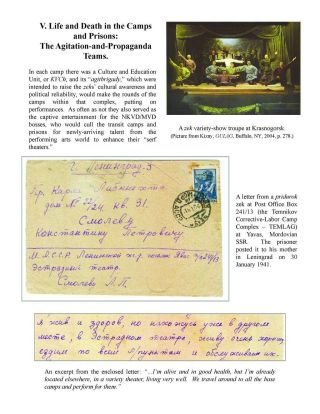 V. Life and Death in the Camps
and Prisons:
The Agitation-and-Propaganda
Teams.
In each camp there was a Culture and Education
Unit, or KVCh, and its "agitbrigady," which were
intended to raise the zeks' cultural awareness and
political reliability, would make the rounds of the
camps within that complex, putting on
performances. As often as not they also served as
the captive entertainment for the NKVD/MVD
bosses, who would call the transit camps and
prisons for newly-arriving talent from the
performing arts world to enhance their "serf
theaters."
A zek variety-show troupe at Krasnogorsk
(Picture from Kizny, GULAG, Buffalo, NY, 2004, p. 278.)
г. Ленинград-3
Пр. Карла Либкнехта
дом № 22/24 кв. 31.
Смолеву
Константину Петровичу
М.АССР Ленинской ж.д.
Эстрадный театр.
A letter from a pridurok
zek at Post Office Box
241/13 (the Temnikov
Corrective-Labor Camp
Complex – TEMLAG)
at Yavas, Mordovian
SSR. The prisoner
posted it to his mother
in Leningrad on 30
January 1941.
Я жив и здоров, но нахожусь уже в другом
месте, в Эстрадном театре, живу очень хорошо
ездим по всем л/пунктам и обслуживаем их.
An excerpt from the enclosed letter: "…I'm alive and in good health, but I'm already
located elsewhere, in a variety theater, living very well. We travel around to all the base
camps and perform for them."